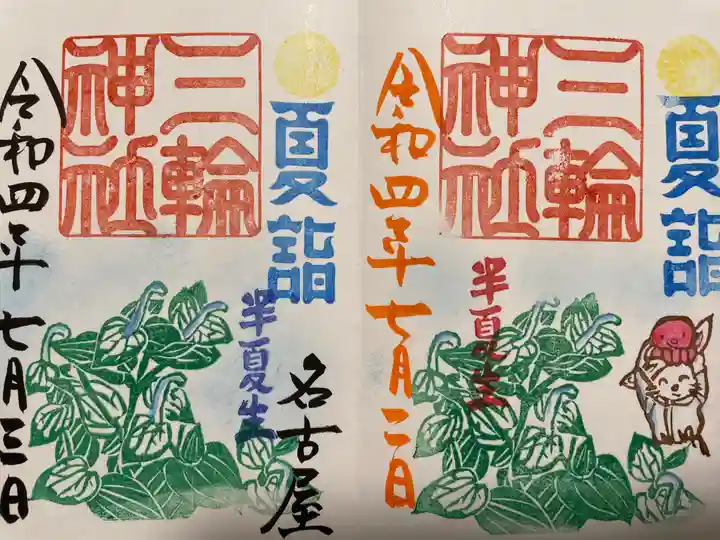 夏詣
三輪
神社
半夏生
令和四年七月二日
夏詣
三輪
神社
半夏生
名古屋
令和四年七月三日